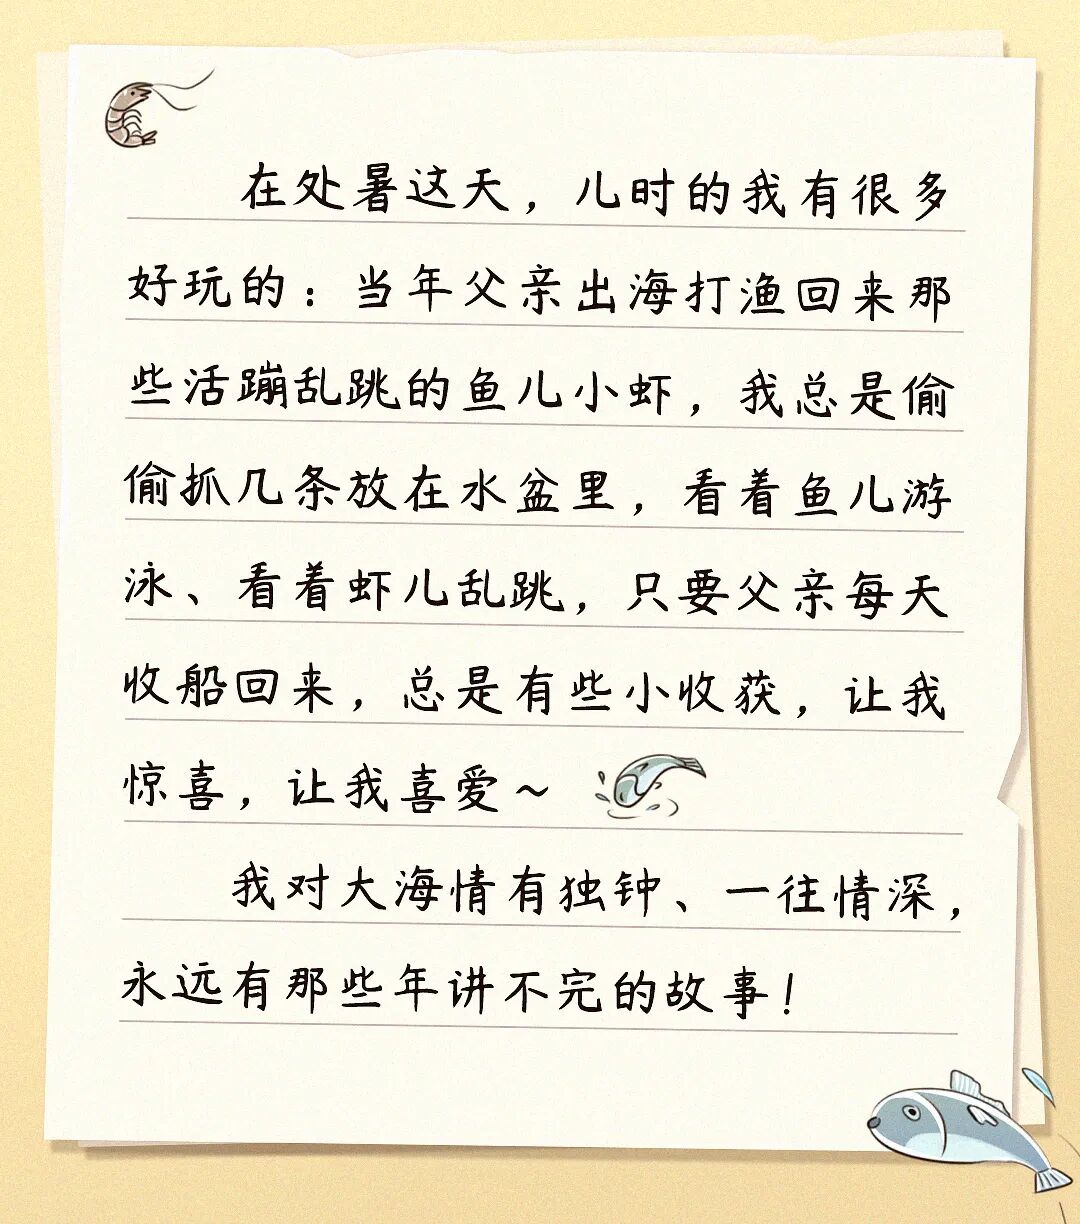 在处暑这天，儿时的我有很多
好玩的：当年父亲出海打渔回来那
些活蹦乱跳的鱼儿小虾，我总是偷
偷抓几条放在水盆里，看着鱼儿游
泳、看着虾儿乱跳，只要父亲每天
收船回来，总是有些小收获，让我
惊喜，让我喜爱~
我对大海情有独钟、一往情深，
永远有那些年讲不完的故事！